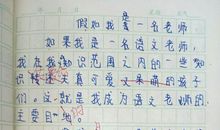 年 月 日
假如我是一名老师
如果我是一名语文老师,
我在我知识范围之内的一些知
识传述天真可爱的孩子
们。这就是我成为语文老师的
主要目地。